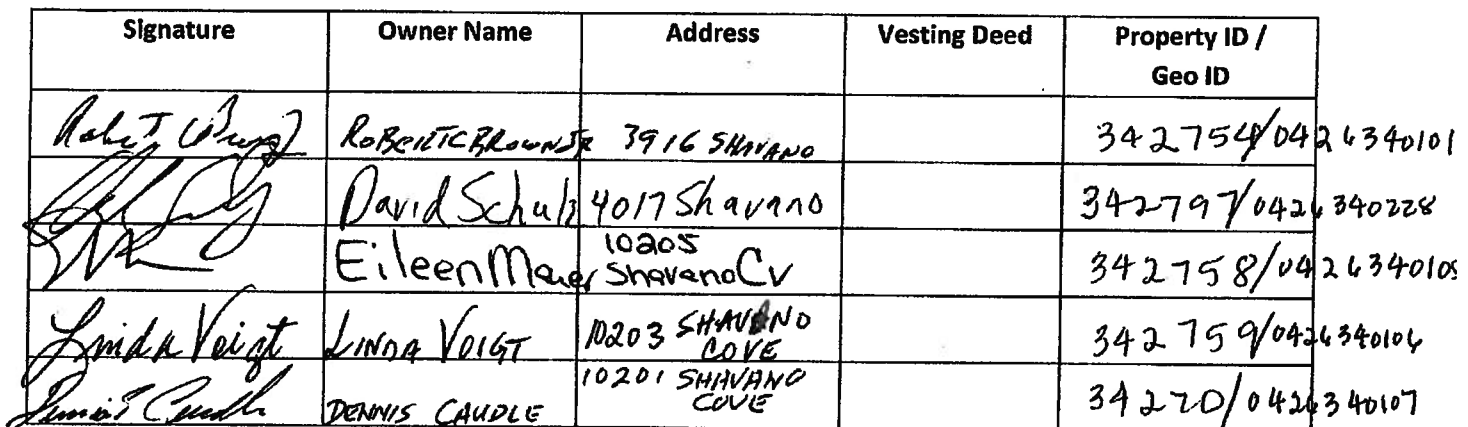 Signature Owner Name Address Vesting Deed Property ID /
Geo ID
ROBERT C BROWN JR 3916 SHAVANO 342754/0426340101
David Schulz 4017 Shavano 342797/0426340228
Eileen 10205
Shavano Cv 342758/0426340105
Linda Voigt LINDA VOIGT 10203 SHAVANO
COVE 342759/0426340106
Dennis Caudle DENNIS CAUDLE 10201 SHAVANO
COVE 34270/0426340107